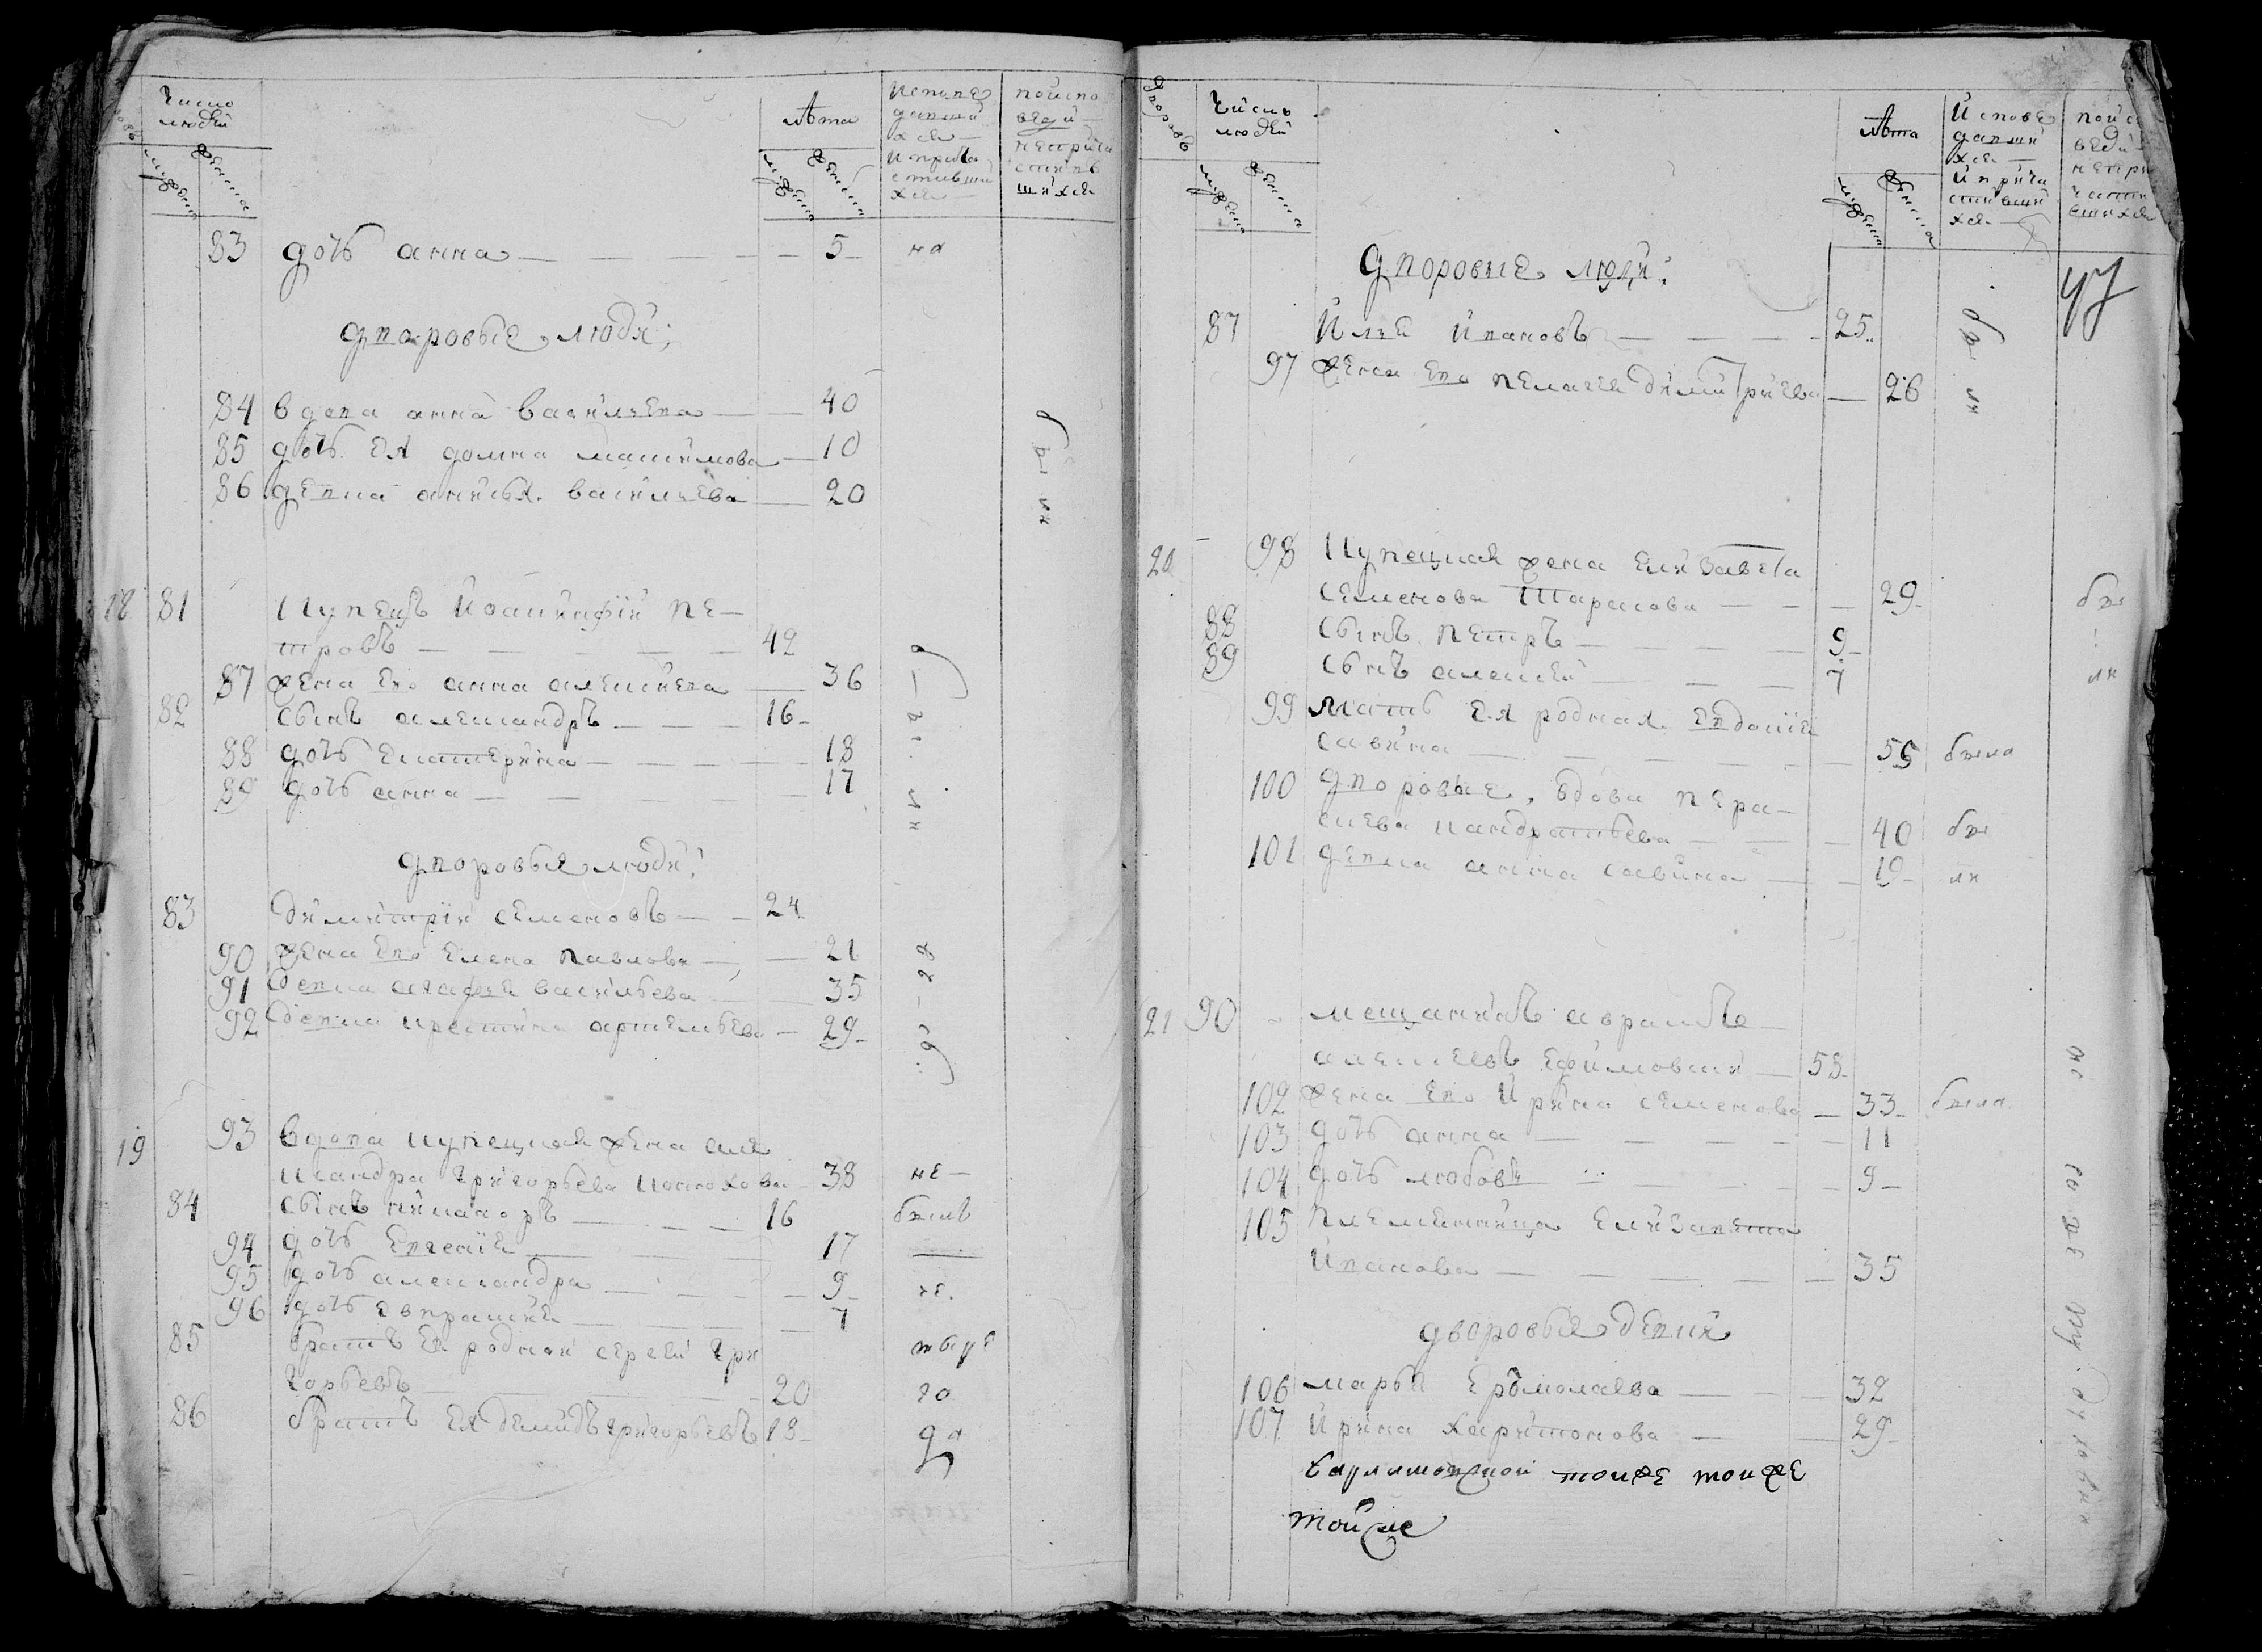 Число людей
лѣта
Исповѣдавшихся и причастившихся
по исповѣди непричастившихся
83 дочь анна — 5 на
дворовые люди;
84 вдова анна васильева — 40
85 дочь ея домна максимова — 10
86 девка анисья васильева — 20
были
18 81 Купецъ Иоаникий Пе-
тровъ — 42
87 жена его анна алексиева — 36
82 сынъ александръ — 16
88 дочь екатерина — 18
89 дочь анна — 17
дворовые люди;
83 димитрий семеновъ — 24
90 жена его елена павлова — 21
91 девка агафья васильева — 35
92 девка кристина артемьева — 29
19 93 вдова купецкая жена але
ксандра григорьева — 38 не
84 сынъ никаноръ — 16 былъ
94 дочь евгения — 17
95 дочь александра — 9
96 дочь евпраксия — 7
85 братъ ея родной сергей гри
горьевъ — 20 го
86 братъ ея демидъ григорьевъ 18 да
Число людей
лѣта
Исповѣдавшихся и причастившихся
по исповѣди непричастившихся
47
дворовые люди;
87 Илья Ивановъ — 25
97 жена его пелагея димитриева — 26
были
20 98 Купецкая жена елизавета
семенова Тарасова — 29
88 сынъ петръ — 9
89 сынъ алексей — 7
99 мать ея родная евдокия
савина — 56 была
100 дворовые, вдова пера-
скева кандратьева — 40 бы
101 девка анна савина — 19 ли
21 90 мещанинъ аврамъ
алексеевъ ефимовский — 53
102 жена его Ирина семенова — 33 была
103 дочь анна — 11
104 дочь любовь — 9
105 племянница елизавета
Иванова — 35
дворовые девки
106 марья ермолаева — 32
107 Ирина харитонова — 29
тойже тойже
тойже